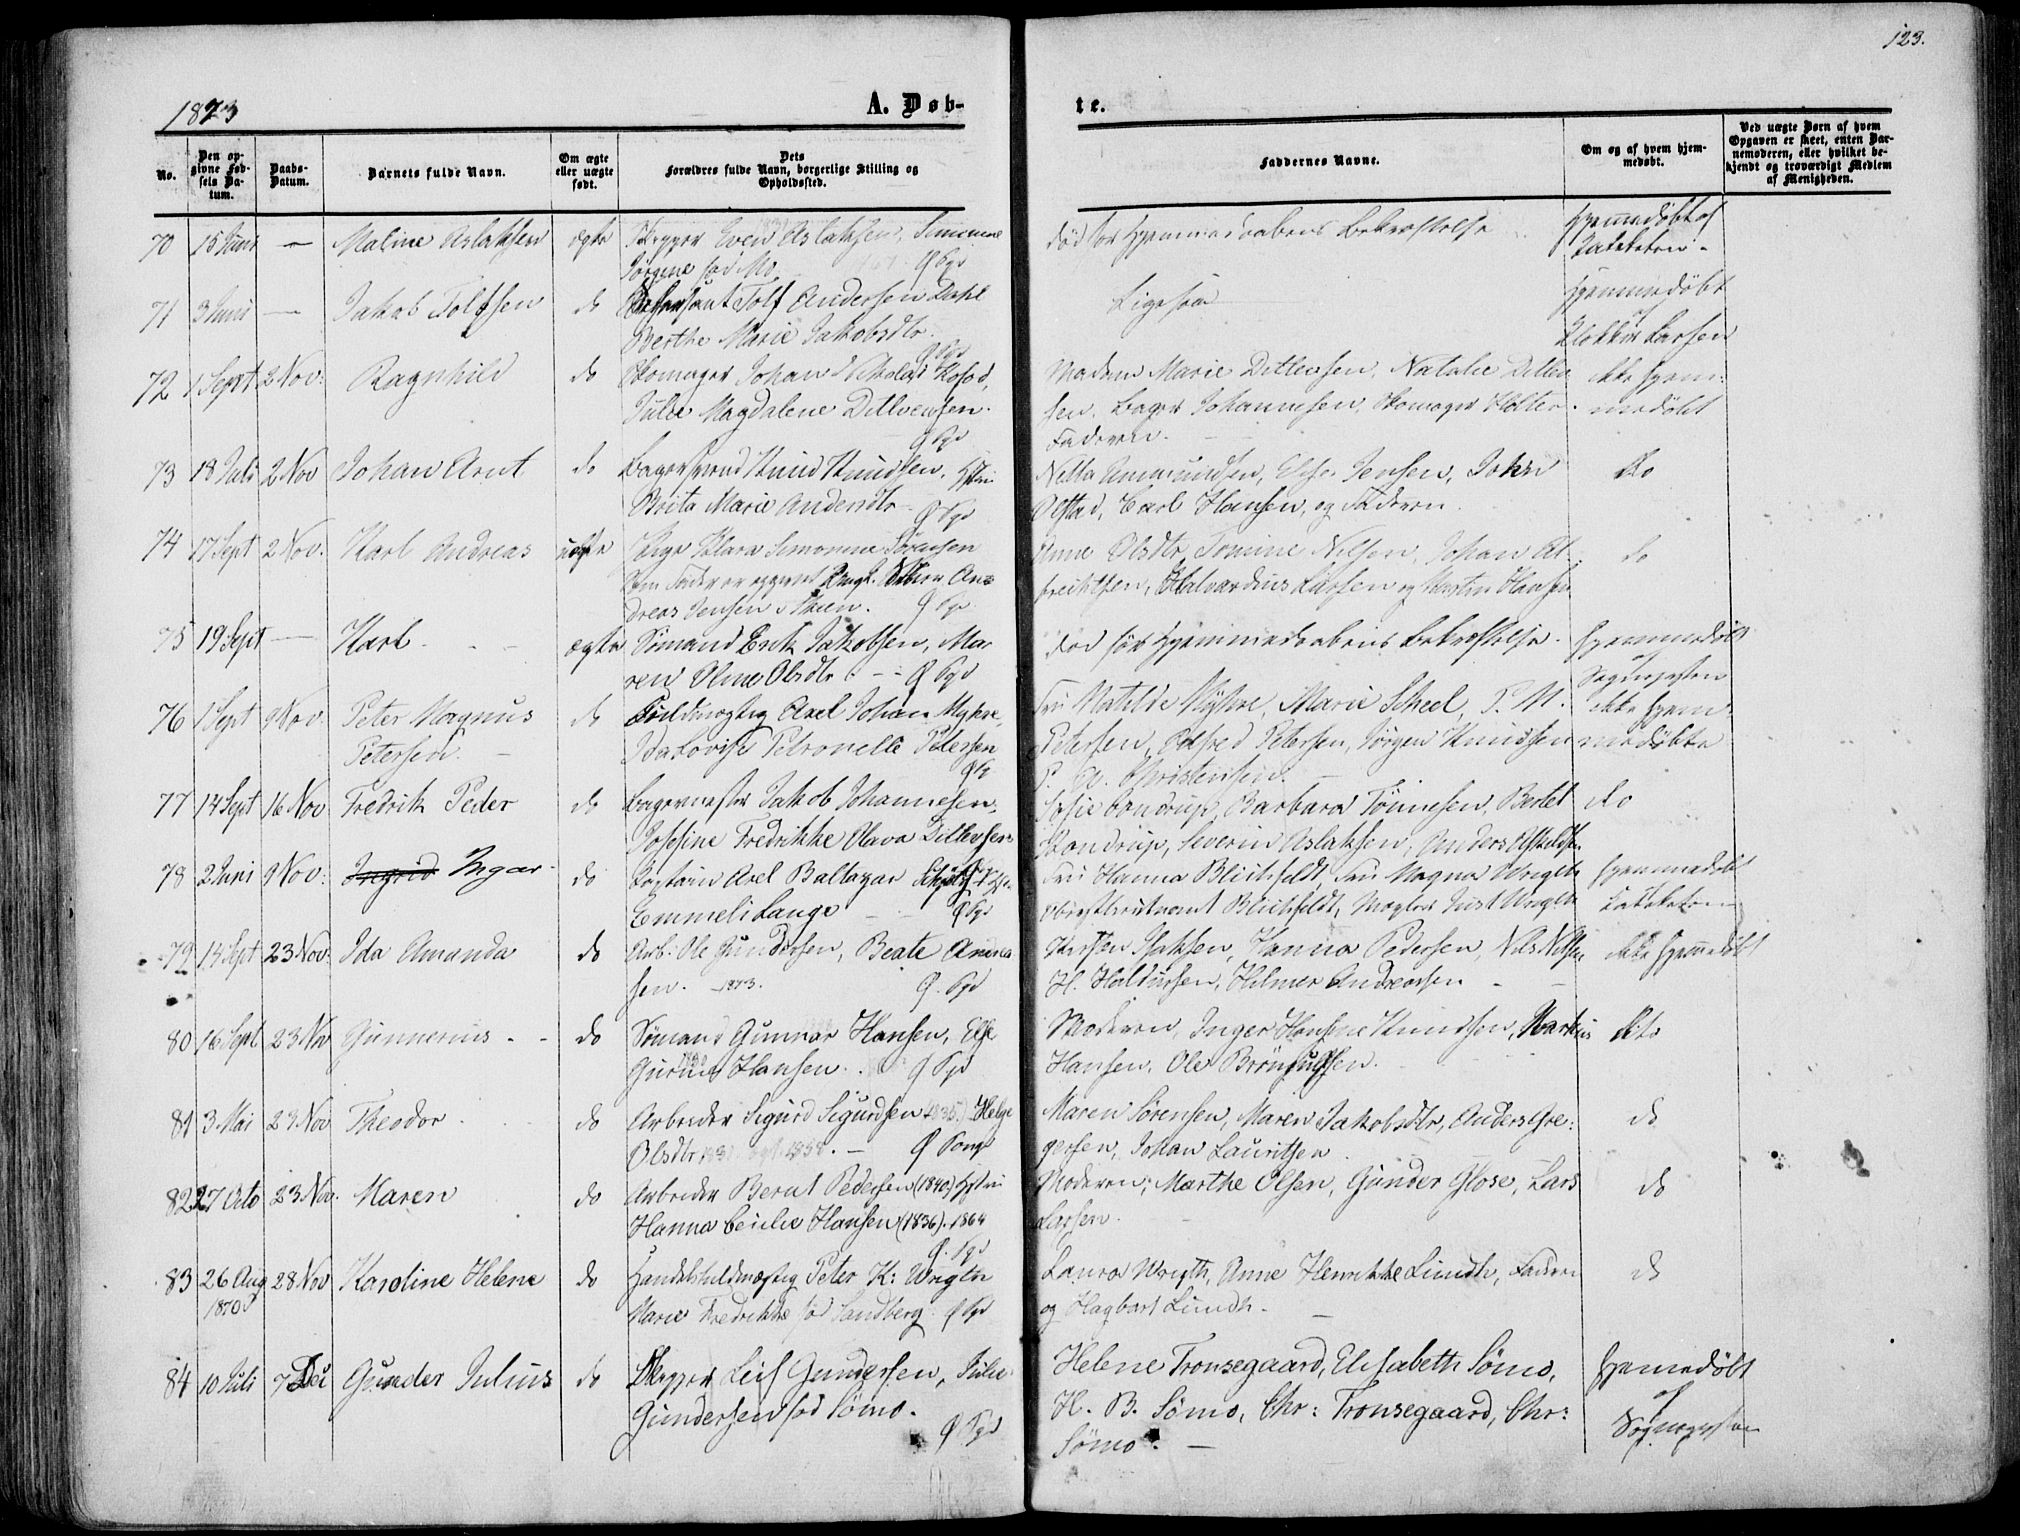 123.
1873
A. Døb-
te.
No.
Den op-
givne Fød-
sels Da-
tum.
Daabs-
Datum.
Barnets fulde Navn.
Om ægte
eller uægte
født.
Dets
Forældres fulde Navn, borgerlige Stilling og
Opholdssted.
Faddernes Navne.
Om og af hvem hjem-
medøbt.
Ved uægte Børn af hvem
Opgaven er skeet, enten Bar-
nemoderen, eller hvilket be-
kjendt og troværdigt Medlem
af Menigheden.
70 15 Juni — Maline Aslaksen ægte Skipper Even Aslaksen, Simmone
Jørgine fød Mo
død før Hjemmedaabens Bekræftelse
Hjemmedøbt af
Kateketen
71 3 Juni — Jakob Tolfsen do Tolf Andersen Dahl
Berthe Marie Jakobsdtr.
Ligesaa
Hjemmedøbt
af
Klokker Larsen
72 1 Sept 2 Nov: Ragnhild do Skomager Johan Nikolai
Julie Magdalene Ditlevsen.
Madam Marie Ditlevsen, Natalie Ditlev
sen, Bager Johannesen, Skomager Holter
Faderen.
ikke hjem-
medøbt
73 18 Juli 2 Nov Johan Arnt do Bagersvend Knud Knudsen, Hstru
Brita Marie Andersdtr
Nella Amundsen, Else Jensen, Johan
Olstad, Carl Hansen, og Faderen.
do
74 17 Sept 2 Nov. Karl Andreas uægte Pige Klara Simonine Sørensen
Som Fader er opgivet Ungk. An-
dreas Jensen i Skien.
Anne Olsdtr, Tomine Nilsen, Johan Al-
fredsen, Halvardius Larsen og Martin Hansen
do
75 19 Sept — Karl. ægte Sømand Erik Jakobsen, Ma-
ren Oline Olsdtr
død før Hjemmedaabens Bekræftelse.
Hjemmedøbt
Sognepresten
76 1 Sept 9 Nov. Peter Magnus
Petersen. do Fuldmægtig Axel Johan Myhre,
Ida Lovise Petronelle Petersen
Fru Matilde Myhre, Marie Scheel, P. M.
Petersen, Alfred Petersen, Jørgen Knudsen
P. A. Christensen.
ikke hjem-
medøbte
77 14 Sept 16 Nov Fredrik Peder do Bagermester Jakob Johannesen,
Josefine Fredrikke Olava Ditlevsen
Sofie Bondrup, Barbara Tønnesen, Bertel
Bondrup, Severin Aslaksen, Anders
do
78 2 Juni 9 Nov: Ingrid Ingar do Kaptain Axel Baltazar
Emmeli Lange
Fru Hanna Blichfeldt, Fru Magna Wrigth
Oberstlieutnant Blichfeldt, Mægler Just Wrigth
Hjemmedøbt
Kateketen
79 14 Sept 23 Nov. Ida Amanda do Arb. Ole Gundersen, Beate Andrea
sen. 1873.
Isaksen, Hanna Pedersen, Nils Nilsen
H. Haldursen, Hilmer Andreassen
ikke hjemmedøbt
80 16 Sept 23 Nov Gunnerius do Sømand Gunnar Hansen, Else
Gurine Hansen.
Moderen, Inger Hansine Knudsen, Markus
Hansen, Ole Brønjulfsen.
dito
81 3 Mai 23 Nov Theodor do Arbeider Sigurd Sigurdsen 1835, Helge
Olsdtr
Maren Sørensen, Maren Jakobsdtr, Anders Gre:
gersen, Johan Lauritsen.
do
82 27 Octo 23 Nov. Maren do Arbeider Bernt Pedersen (1840) Hstru
Hanna Cecilie Hansen (1836). 1864
Moderen, Marthe Olsen, Gunder Glose, Lars
Larsen.
do
83 26 Aug
1870 28 Nov Karoline Helene do Handelsfuldmægtig Peter K: Wrigth
Marie Fredrikke fød Sandberg
Laura Wrigth, Anne Henrikke Lundh, Faderen
og Hagbart Lundh.
do
84 10 Juli 7 Dec Gunder Julius do Skipper Leif Gundersen, Julie
Gundersen fød Sømo.
Helene Tronsegaard, Elisabeth Sømo,
H. B. Sømo, Chr: Tronsegaard, Chr:
Sømo. —
Hjemmedøbt
af
Sognepresten